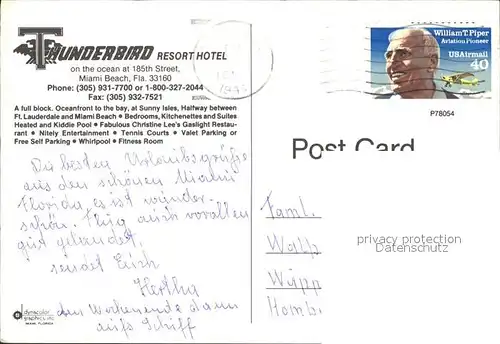 THUNDERBIRD RESORT HOTEL
on the ocean at 185th Street,
Miami Beach, Fla. 33160
Phone: (305) 931-7700 or 1-800-327-2044
Fax: (305) 932-7521
A full block. Oceanfront to the bay, at Sunny Isles, Halfway between
Ft. Lauderdale and Miami Beach • Bedrooms, Kitchenettes and Suites
Heated and Kiddie Pool • Fabulous Christine Lee's Gaslight Restau-
rant • Nitely Entertainment • Tennis Courts • Valet Parking or
Free Self Parking • Whirlpool • Fitness Room
William T. Piper
Aviation Pioneer
USAirmail
40
P78054
Post Card
Die besten Urlaubsgrüße
aus dem schönen Miami
Florida es ist wunder-
schön. Flug auch
gut gelandet,
sendet Euch
Hertha
den Wochenende dann
aufs Schiff
Faml.
Wupp
Homb
privacy protection
Datenschutz
dynacolor
graphics inc.
MIAMI, FLORIDA